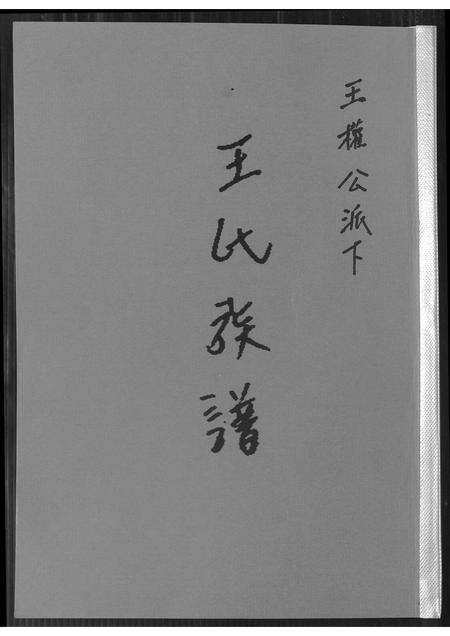 王權公派下
王氏族譜